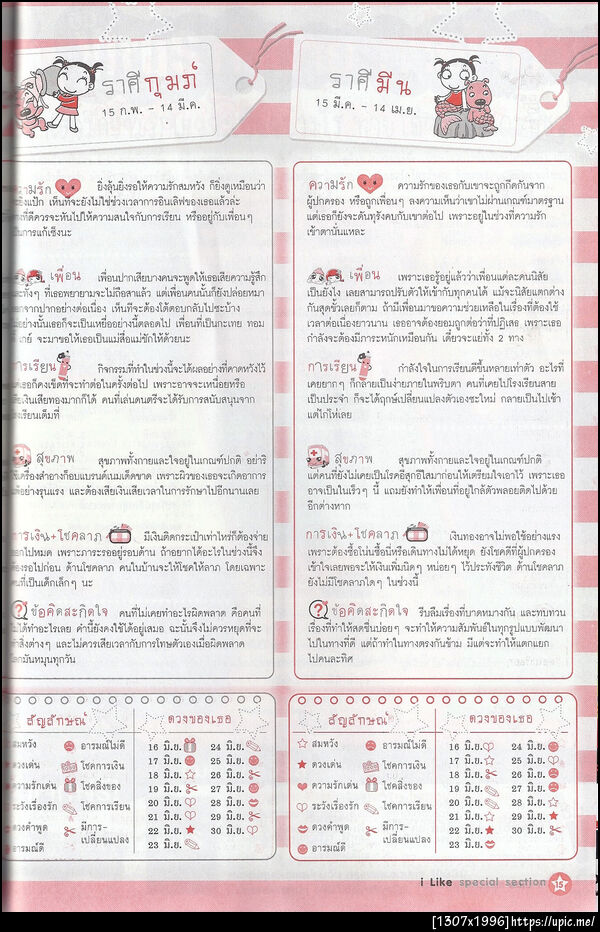 ราศีกุมภ์
15 ก.พ. - 14 มี.ค.
ราศีมีน
15 มี.ค. - 14 เม.ย.
ามรัก ยิ่งลุ้นยิ่งรอให้ความรักสมหวัง ก็ยิ่งดูเหมือนว่า
ยิ่งแป้ก เห็นทีจะยังไม่ใช่ช่วงเวลาการอินเลิฟของเธอแล้วล่ะ
ที่ดีควรจะหันไปให้ความสนใจกับการเรียน หรืออยู่กับเพื่อนๆ
นการแก้เซ็งนะ
เพื่อน เพื่อนปากเสียบางคนจะพูดให้เธอเสียความรู้สึก
ทั้งๆ ที่เธอพยายามจะไม่ถือสาแล้ว แต่เพื่อนคนนั้นก็ยังปล่อยหมา
อกจากปากอย่างต่อเนื่อง เห็นทีจะต้องโต้ตอบกลับไปซะบ้าง
อย่างนั้นเธอก็จะเป็นเหยื่ออย่างนี้ตลอดไป เพื่อนที่เป็นกะเทย ทอม
เกย์ จะมาขอให้เธอเป็นแม่สื่อแม่ชักให้ด้วยนะ
การเรียน กิจกรรมที่ทำในช่วงนี้จะได้ผลอย่างที่คาดหวังไว้
เธอก็คงเข็ดที่จะทำต่อในครั้งต่อไป เพราะอาจจะเหนื่อยหรือ
เสียเงินเสียทองมากก็ได้ คนที่เล่นดนตรีจะได้รับการสนับสนุนจาก
งเรียนเต็มที่
สุขภาพ สุขภาพทั้งกายและใจอยู่ในเกณฑ์ปกติ อย่าริ
เครื่องสำอางก็อบแบรนด์เนมเด็ดขาด เพราะผิวของเธอจะเกิดอาการ
อย่างรุนแรง และต้องเสียเงินเสียเวลาในการรักษาไปอีกนานเลย
การเงิน+โชคลาภ มีเงินติดกระเป๋าเท่าไหร่ก็ต้องจ่าย
อกไปหมด เพราะภาระรออยู่รอบด้าน ถ้าอยากได้อะไรในช่วงนี้จึง
องรอไปก่อน ด้านโชคลาภ คนในบ้านจะให้โชคให้ลาภ โดยเฉพาะ
นที่เป็นเด็กเล็กๆ นะ
ข้อคิดสะกิดใจ คนที่ไม่เคยทำอะไรผิดพลาด คือคนที่
ได้ทำอะไรเลย คำนี้ยังคงใช้ได้อยู่เสมอ ฉะนั้นจึงไม่ควรหยุดที่จะ
สิ่งต่างๆ และไม่ควรเสียเวลากับการโทษตัวเองเมื่อผิดพลาด
กมันหมุนทุกวัน
ความรัก ความรักของเธอกับเขาจะถูกกีดกันจาก
ผู้ปกครอง หรือถูกเพื่อนๆ ลงความเห็นว่าเขาไม่ผ่านเกณฑ์มาตรฐาน
แต่เธอก็ยังจะดันทุรังคบกับเขาต่อไป เพราะอยู่ในช่วงที่ความรัก
เข้าตานั่นแหละ
เพื่อน เพราะเธอรู้อยู่แล้วว่าเพื่อนแต่ละคนนิสัย
เป็นยังไง เลยสามารถปรับตัวให้เข้ากับทุกคนได้ แม้จะนิสัยแตกต่าง
กันสุดขั้วเลยก็ตาม ถ้ามีเพื่อนมาขอความช่วยเหลือในเรื่องที่ต้องใช้
เวลาต่อเนื่องยาวนาน เธออาจต้องยอมถูกต่อว่าที่ปฏิเสธ เพราะเธอ
กำลังจะต้องมีภาระหนักเหมือนกัน เดี๋ยวจะแย่ทั้ง 2 ทาง
การเรียน กำลังใจในการเรียนดีขึ้นหลายเท่าตัว อะไรที่
เคยยากๆ ก็กลายเป็นง่ายภายในพริบตา คนที่เคยไปโรงเรียนสาย
เป็นประจำ ก็จะได้ฤกษ์เปลี่ยนแปลงตัวเองซะใหม่ กลายเป็นไปเช้า
แต่ไก่โห่เลย
สุขภาพ สุขภาพทั้งกายและใจอยู่ในเกณฑ์ปกติ
แต่คนที่ยังไม่เคยเป็นโรคอีสุกอีใสมาก่อนให้เตรียมใจเอาไว้ เพราะเธอ
อาจเป็นในเร็วๆ นี้ แถมยังทำให้เพื่อนที่อยู่ใกล้ตัวพลอยติดไปด้วย
อีกต่างหาก
การเงิน+โชคลาภ เงินทองอาจไม่พอใช้อย่างแรง
เพราะต้องซื้อโน่นซื้อนี่หรือเดินทางไม่ได้หยุด ยังโชคดีที่ผู้ปกครอง
เข้าใจเลยพอจะให้เงินเพิ่มนิดๆ หน่อยๆ ไว้ประทังชีวิต ด้านโชคลาภ
ยังไม่มีโชคลาภใดๆ ในช่วงนี้
ข้อคิดสะกิดใจ รีบลืมเรื่องที่บาดหมางกัน และทบทวน
เรื่องที่ทำให้สดชื่นบ่อยๆ จะทำให้ความสัมพันธ์ในทุกรูปแบบพัฒนา
ไปในทางที่ดี แต่ถ้าทำในทางตรงกันข้าม มีแต่จะทำให้แตกแยก
ไปคนละทิศ
สัญลักษณ์ ดวงของเธอ
สมหวัง อารมณ์ไม่ดี 16 มิ.ย. 24 มิ.ย.
ดวงเด่น โชคการเงิน 17 มิ.ย. 25 มิ.ย.
ความรักเด่น โชคสิ่งของ 18 มิ.ย. 26 มิ.ย.
19 มิ.ย. 27 มิ.ย.
ระวังเรื่องรัก โชคการเรียน 20 มิ.ย. 28 มิ.ย.
ดวงคำพูด มีการ- 21 มิ.ย. 29 มิ.ย.
เปลี่ยนแปลง 22 มิ.ย. 30 มิ.ย.
อารมณ์ดี 23 มิ.ย.
สัญลักษณ์ ดวงของเธอ
สมหวัง อารมณ์ไม่ดี 16 มิ.ย. 24 มิ.ย.
ดวงเด่น โชคการเงิน 17 มิ.ย. 25 มิ.ย.
ความรักเด่น โชคสิ่งของ 18 มิ.ย. 26 มิ.ย.
19 มิ.ย. 27 มิ.ย.
ระวังเรื่องรัก โชคการเรียน 20 มิ.ย. 28 มิ.ย.
ดวงคำพูด มีการ- 21 มิ.ย. 29 มิ.ย.
เปลี่ยนแปลง 22 มิ.ย. 30 มิ.ย.
อารมณ์ดี 23 มิ.ย.
i Like special section 15
[1307x1996]https://upic.me/